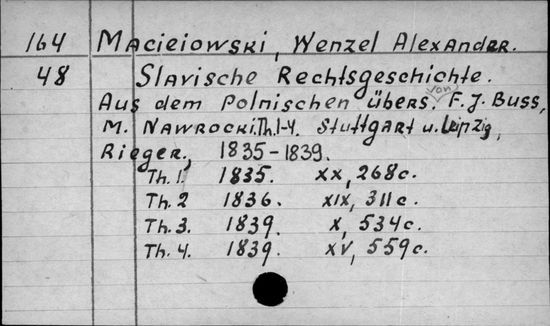 164 Macieiowski, Wenzel Alexander.
48 Slavische Rechtsgeschichte.
Aus dem Polnischen übers. von F. J. Buss,
M. Nawrocki. Th. 1-4. Stuttgart u. Leipzig,
Rieger., 1835-1839.
Th. 1. 1835. XX, 268c.
Th. 2 1836. XIX, 311c.
Th. 3. 1839. X, 534c.
Th. 4. 1839. XV, 559c.